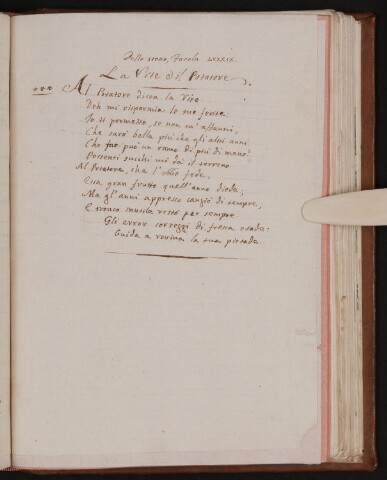 Dello stesso, Favola LXXXIX.
La Vite e il Potatore.
Al Potatore dicea la Vite
Deh mi risparmia le tue ferite
Io ti prometto, se non m'affanni,
Che sarò bella più che gli altri anni.
Che far può un ramo di più di mano?
Possenti succhi mi dà il terreno
Al Potatore, che l'ebbe fede,
Essa gran frutto quell'anno diede;
Ma gl'anni appresso cangiò di tempre,
E tronco inutile restò per sempre.
Gli error correggi di fresca etade:
Guida a rovina la tua pietade.